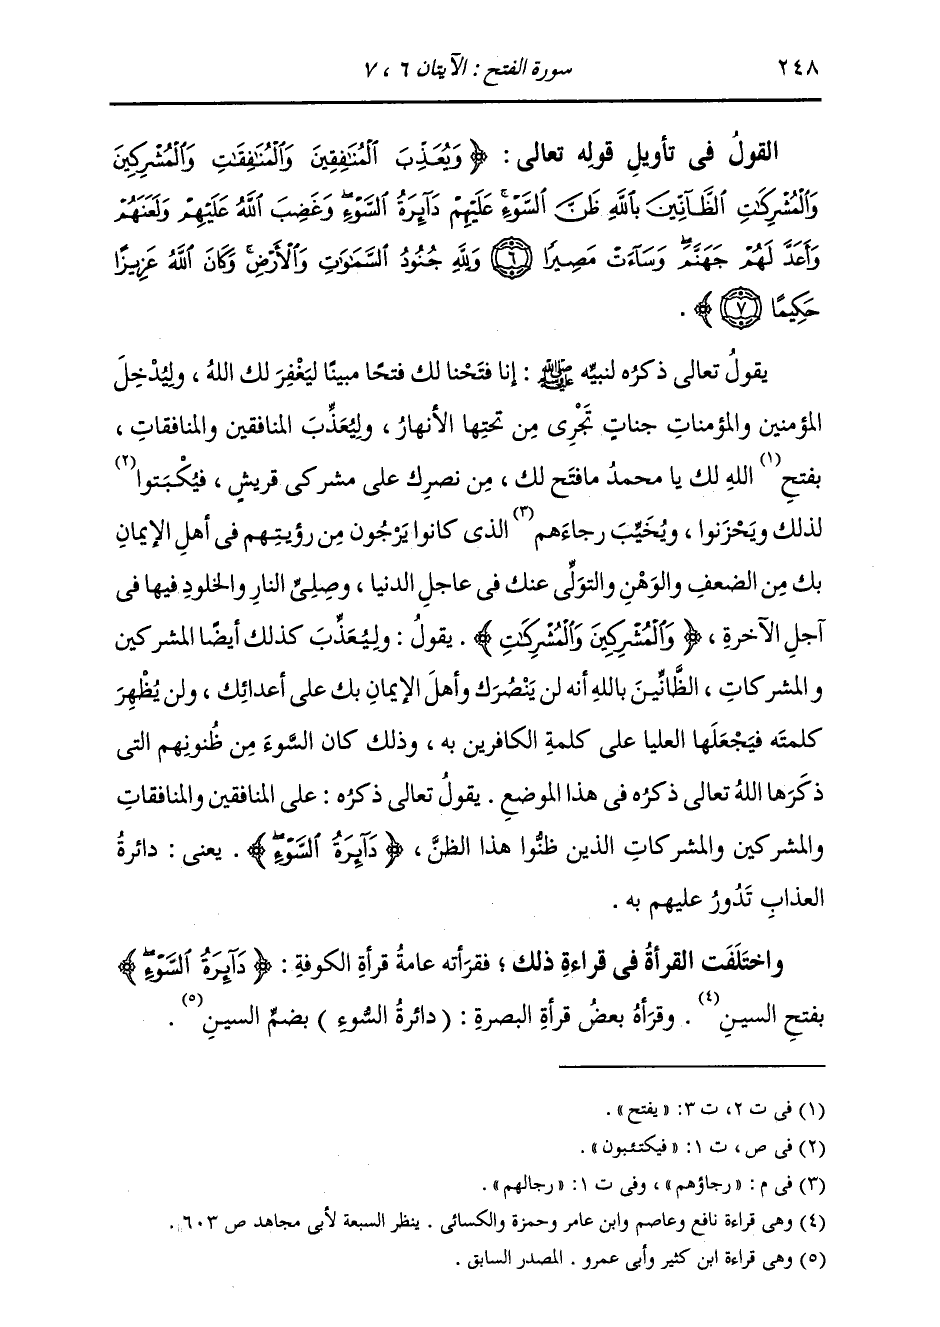 ٢٤٨ سورة الفتح : الآيتان ٦ ، ٧
القولُ فى تأويلِ قوله تعالى : ﴿ وَيُعَذِّبَ ٱلْمُنَٰفِقِينَ وَٱلْمُنَٰفِقَٰتِ وَٱلْمُشْرِكِينَ
وَٱلْمُشْرِكَٰتِ ٱلظَّآنِّينَ بِٱللَّهِ ظَنَّ ٱلسَّوْءِۚ عَلَيْهِمْ دَآئِرَةُ ٱلسَّوْءِۖ وَغَضِبَ ٱللَّهُ عَلَيْهِمْ وَلَعَنَهُمْ
وَأَعَدَّ لَهُمْ جَهَنَّمَۖ وَسَآءَتْ مَصِيرًا ٦ وَلِلَّهِ جُنُودُ ٱلسَّمَٰوَٰتِ وَٱلْأَرْضِۚ وَكَانَ ٱللَّهُ عَزِيزًا
حَكِيمًا ٧ ﴾ .
يقولُ تعالى ذكرُه لنبيِّه ﷺ : إنا فتَحْنا لك فتحًا مبينًا ليَغْفِرَ لك اللهُ ، وليُدْخِلَ
المؤمنين والمؤمناتِ جناتٍ تَجْرِى مِن تحتِها الأنهارُ ، وليُعَذِّبَ المنافقين والمنافقاتِ ،
بفتحِ(١) اللهِ لك يا محمدُ مافتَح لك ، مِن نصرِك على مشركى قريشٍ ، فيُكْبَتوا(٢)
لذلك ويَحْزَنوا ، ويُخَيِّبَ رجاءَهم(٣) الذى كانوا يَرْجُون مِن رؤيتِهم فى أهلِ الإيمانِ
بك مِن الضعفِ والوَهْنِ والتولِّى عنك فى عاجلِ الدنيا ، وصِلِىِّ النارِ والخلودِ فيها فى
آجلِ الآخرةِ ، ﴿ وَٱلْمُشْرِكِينَ وَٱلْمُشْرِكَٰتِ ﴾ . يقولُ : وليُعَذِّبَ كذلك أيضًا المشركين
والمشركاتِ ، الظَّانِّينَ باللهِ أنه لن يَنْصُرَك وأهلَ الإيمانِ بك على أعدائِك ، ولن يُظْهِرَ
كلمتَه فيَجْعَلَها العليا على كلمةِ الكافرين به ، وذلك كان السَّوءَ مِن ظُنونِهم التى
ذكَرَها اللهُ تعالى ذكرُه فى هذا الموضعِ . يقولُ تعالى ذكرُه : على المنافقين والمنافقاتِ
والمشركين والمشركاتِ الذين ظنُّوا هذا الظنَّ ، ﴿ دَآئِرَةُ ٱلسَّوْءِۖ ﴾ . يعنى : دائرةُ
العذابِ تَدُورُ عليهم به .
واختَلَفَت القرأةُ فى قراءةِ ذلك ؛ فقرَأته عامةُ قرأةِ الكوفةِ : ﴿ دَآئِرَةُ ٱلسَّوْءِۖ ﴾
بفتحِ السينِ(٤) . وقرَأهُ بعضُ قرأةِ البصرةِ : ( دائرةُ السُّوءِ ) بضمِّ السينِ(٥) .
(١) فى ت ٢، ت ٣: «يفتح» .
(٢) فى ص ، ت ١: «فيكتئبون» .
(٣) فى م : «رجاؤهم» ، وفى ت ١: «رجالهم» .
(٤) وهى قراءة نافع وعاصم وابن عامر وحمزة والكسائى . ينظر السبعة لأبى مجاهد ص ٦٠٣ .
(٥) وهى قراءة ابن كثير وأبى عمرو . المصدر السابق .